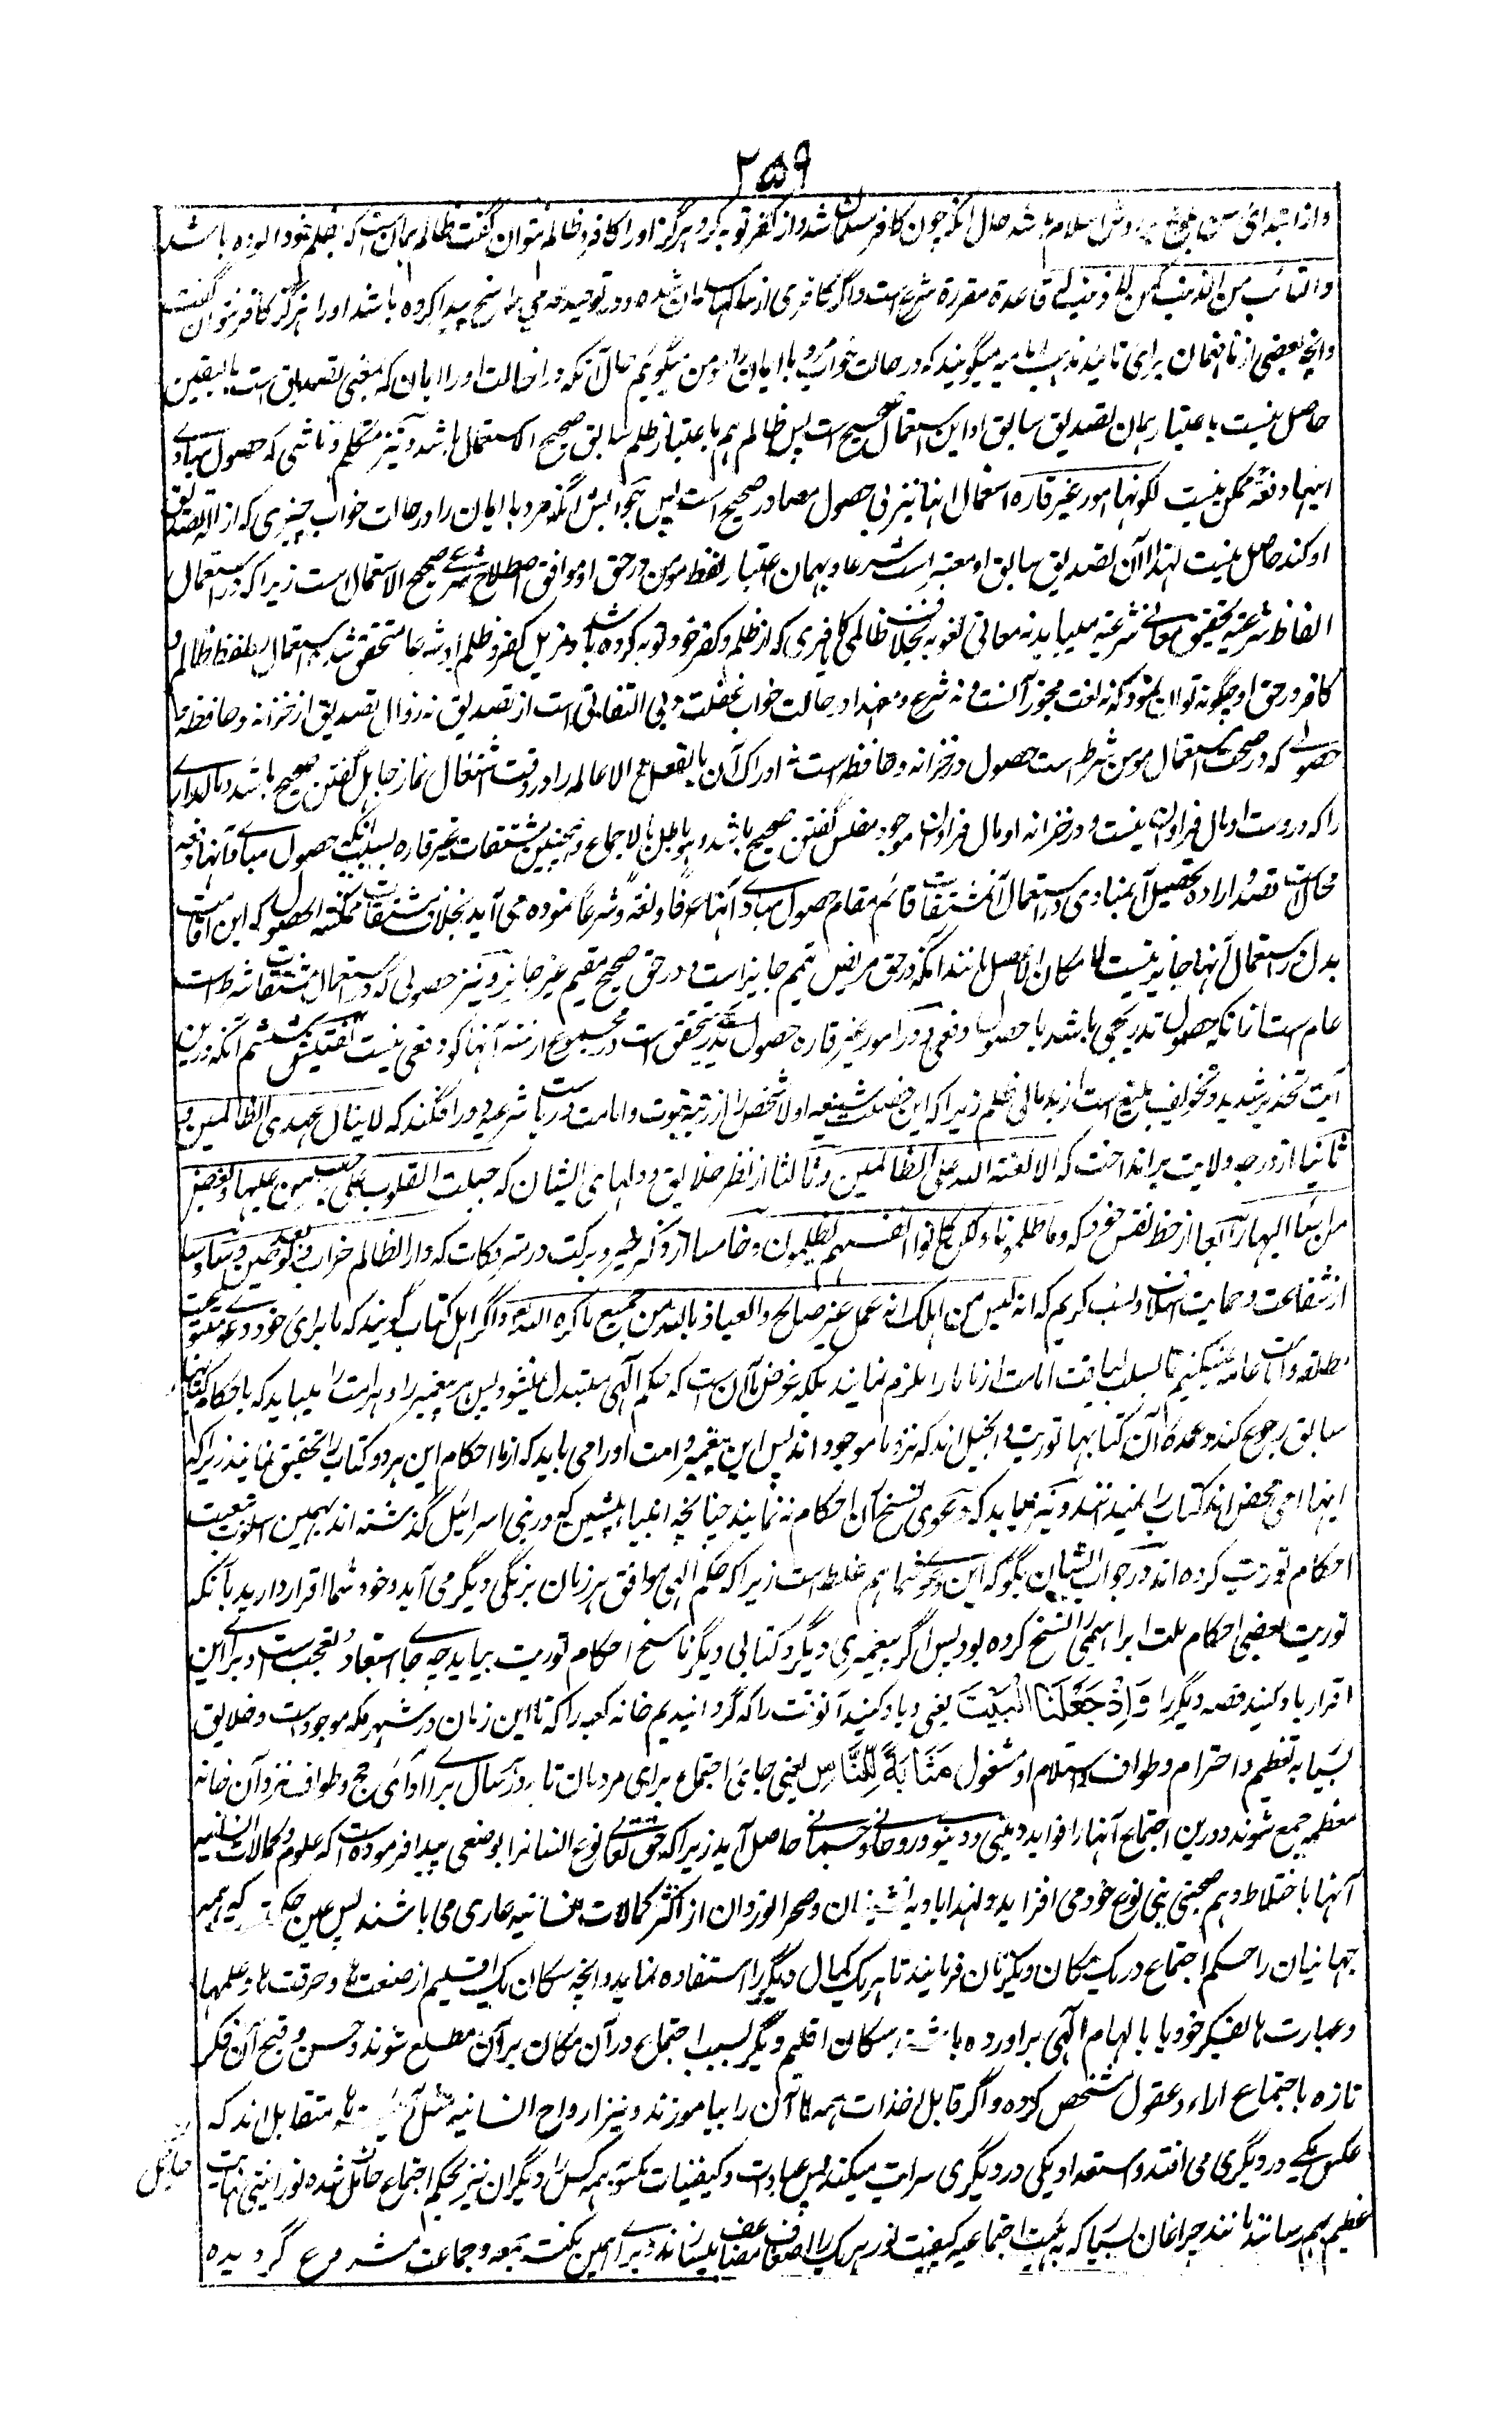 ۲۵۹
و از ابتدای سن بلوغ بر روش اسلام باشد حال آنکه چون کافر مسلمان شد و از کفر توبه کرد هرگز او را کافر و ظالم نتوان گفت ظالم همان است که بظلم خود آلوده باشد
والتائب من الذنب کمن لا ذنب له قاعدهٔ مقررهٔ شرع است و اگر کافری از ما مسلمان شده و در توحید قدمی راسخ پیدا کرده باشد او را هرگز کافر نتوان گفت
و آنچه بعضی از نافهمان برای تائید مذهب امامیه میگویند که در حالت خواب مرد با ایمان را مومن میگویم حال آنکه در انحالت او را ایمان که بمعنی تصدیق است بالیقین
حاصل نیست باعتبار همان تصدیق سابق او این استعمال صحیح است پس ظالم هم باعتبار ظلم سابق صحیح الاستعمال باشد و نیز متکلم و ماشی که حصول مبادی
اینها دفعة ممکن نیست لکونها امور غیر قاره استعمال اینها نیز بی حصول مصادر صحیح است پس جوابش آنکه مرد با ایمان را در حالت خواب چیزی که ازاله تصدیق
او کند حاصل نیست لهذا آن تصدیق سابق او معتبر است شرعا و بهمان اعتبار لفظ مومن در حق او موافق اصطلاح شرع صحیح الاستعمال است زیرا که در استعمال
الفاظ شرعیه تحقیق معانی شرعیه میباید نه معانی لغویه بخلاف ظالمی و کافری که از ظلم و کفر خود توبه کرده باشد و مزیل کفر و ظلم او شرعا متحقق شد استعمال لفظ ظالم و
کافر در حق او چگونه توان نمود که نه لغت مجوز آنست و نه شرع و معهذا در حالت خواب غفلت و بی التفاتی است از تصدیق نه زوال تصدیق از خزانه و حافظه و
حصولی که در صحت استعمال مومن شرط است حصول در خزانه و حافظه است نه ادراک آن بالفعل و الا عالم را در وقت اشتغال نماز جاهل گفتن صحیح باشد و مالداری
را که در دست او مال فراوان نیست و در خزانه او مال فراوان موجود مفلس گفتن صحیح باشد و هو باطل بالاجماع و همچنین مشتقات غیر قاره بسبب آنکه حصول مبادی آنها دفعة
محال است قصد و اراده تحصیل آن مبادی در استعمال آن مشتقات قائم مقام حصول مبادی آنها عرفا و لغة و شرعا نموده می آید بخلاف مشتقات ممکنة الحصول که این اقامت
بدل در استعمال آنها جائز نیست لامکان الاصل مانند آنکه در حق مریض تیمم جایز است و در حق صحیح مقیم غیر جایز و نیز حصولی که در استعمال مشتقات شرط است
عام ست از آنکه حصول تدریجی باشد یا حصول دفعی و در امور غیر قاره حصول تدریجی متحقق است در مجموع ازمنه آنها گو دفعی نیست تفتیش ششم آنکه در این
آیت تحذیر شدید و تخویف بلیغ ست از بدمالی ظلم زیرا که این خصلت شنیعه اولا شخص را از رتبه نبوت و امامت و ریاست شرعی دور افکند که لا ینال عهدی الظالمین و
ثانیا از درجه ولایت برانداخت که الا لعنة الله علی الظالمین و ثالثا از نظر خلایق و دلهای ایشان که جبلت القلوب علی حب من احسن علیها و بغض
من اسا الیها و رابعا از حظ نفس خود که وما ظلمونا ولکن کانوا انفسهم یظلمون و خامسا از ذکر خیر و برکت در متروکات که دار الظالم خراب ولو بعد حین و سادسا
از شفاعت و حمایت اسلاف و نسب کریم که انه لیس من اهلک انه عمل غیر صالح والعیاذ بالله من جمیع ما کره الله و اگر اهل کتاب گویند که ما برای خود دعوی متبوعیت
مطلقه و امامت عامه نمیکنیم تا بسلب لیاقت امامت از ما ما را ملزم نمایند بلکه غرض ما آن ست که حکم الهی متبدل نمیشود پس هر پیغمبر را و هر امت را میباید که باحکام کتابهای
سابق رجوع کند و عمده آن کتابها توریت و انجیل اند که نزد ما موجود اند پس این پیغمبر و امت او را می باید که از ما احکام این هر دو کتاب را تحقیق نمایند زیرا که
اینها امی محض اند کتاب را نمیدانند و نیز میباید که دعوی نسخ آن احکام ننمایند چنانچه انبیاء پیشین که در بنی اسرائیل گذشته اند بهمین اسلوب تبعیت
احکام توریت کرده اند در جواب ایشان بگو که این دعوی شما هم غلط است زیرا که حکم الهی موافق هر زمان برنگی دیگر می آید و خود شما اقرار دارید بآنکه
توریت بعضی احکام ملت ابراهیمی را نسخ کرده بود پس اگر پیغمبری دیگر و کتابی دیگر ناسخ احکام توریت بیاید چه جای استبعاد و تعجب است و برای این
اقرار یاد کنید قصه دیگر را وَإِذْ جَعَلْنَا الْبَيْتَ یعنی و یاد کنید آنوقت را که گردانیدیم خانه کعبه را که تا این زمان در شهر مکه موجود است و خلایق
بسیار به تعظیم و احترام و طواف و استلام او مشغول مَثَابَةً لِلنَّاسِ یعنی جای اجتماع برای مردمان تا هر سال برای ادای حج و طواف نزد آن خانه
معظمه جمع شوند و درین اجتماع آنها را فواید دینی و دنیوی و روحانی و جسمانی حاصل آید زیرا که حق تعالی نوع انسان را بوضعی پیدا فرموده است که علوم و کمالات انسانیه
آنها باختلاط و هم صحبتی بنی نوع خود می افزاید و لهذا بادیه نشینان و صحرا نوردان از اکثر کمالات نفسانیه عاری می باشند پس عین حکمت که همه
جهانیان را حکم اجتماع در یک مکان و یک زمان فرمایند تا هر یک کمال دیگر را استفاده نماید و آنچه سکان یک اقلیم از صنعت ها و حرفت ها و علمها
و عبارت ها بفکر خود یا بالهام الهی برآورده باشند سکان اقلیم دیگر بسبب اجتماع در آن مکان بر آن مطلع شوند و حسن و قبح آن فکر
تازه باجتماع اراء و عقول مشخص گردد و اگر قابل اخذ است همه ها آن را بیاموزند و نیز ارواح انسانیه مثل آئینه ها متقابل اند که
عکس یکی در دیگری می افتد و استعداد یکی در دیگری سرایت میکند پس عبادات و کیفیات مکتوبه هر کس را دیگران نیز بحکم اجتماع حاصل شده نورانیتی نهایت
عظیم بهم رسانند مانند چراغان بسیار که بهئیت اجتماعیه کیفیت نور هر یک را اضعاف مضاعف میرسانند و برای همین نکته جمعه و جماعت مشروع گردیده